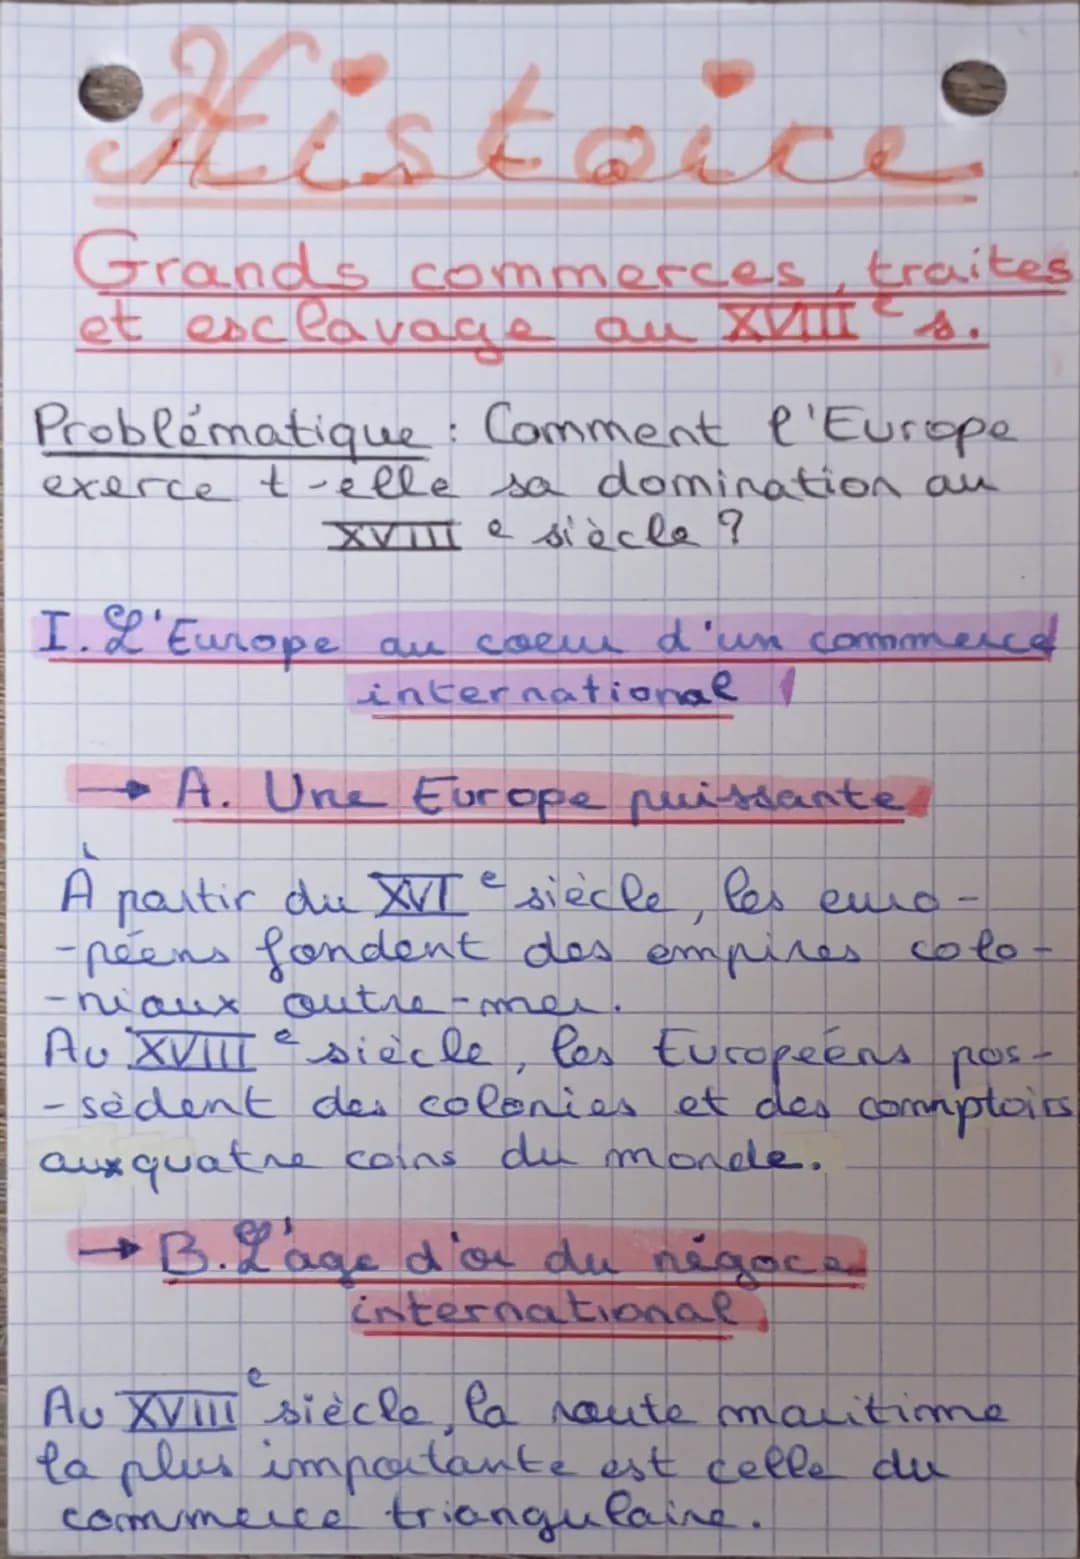 Histoire
Grands commerces, traites
et esclavage au XVIII e s.
Problématique : Comment l'Europe
exerce t-elle sa domination au
XVIII e siècle ?
I. L'Europe au coeur d'un commerce
international
→ A. Une Europe puissante
À partir du XVI e siècle, les euro-
-péens fondent des empires colo-
-niaux outre-mer.
Au XVIII e siècle, les Européens pos-
-sèdent des colonies et des comptoirs
aux quatre coins du monde.
→ B. L'age d'or du négoce
international
Au XVIII e siècle, la route maritime
la plus importante est celle du
commerce triangulaire.